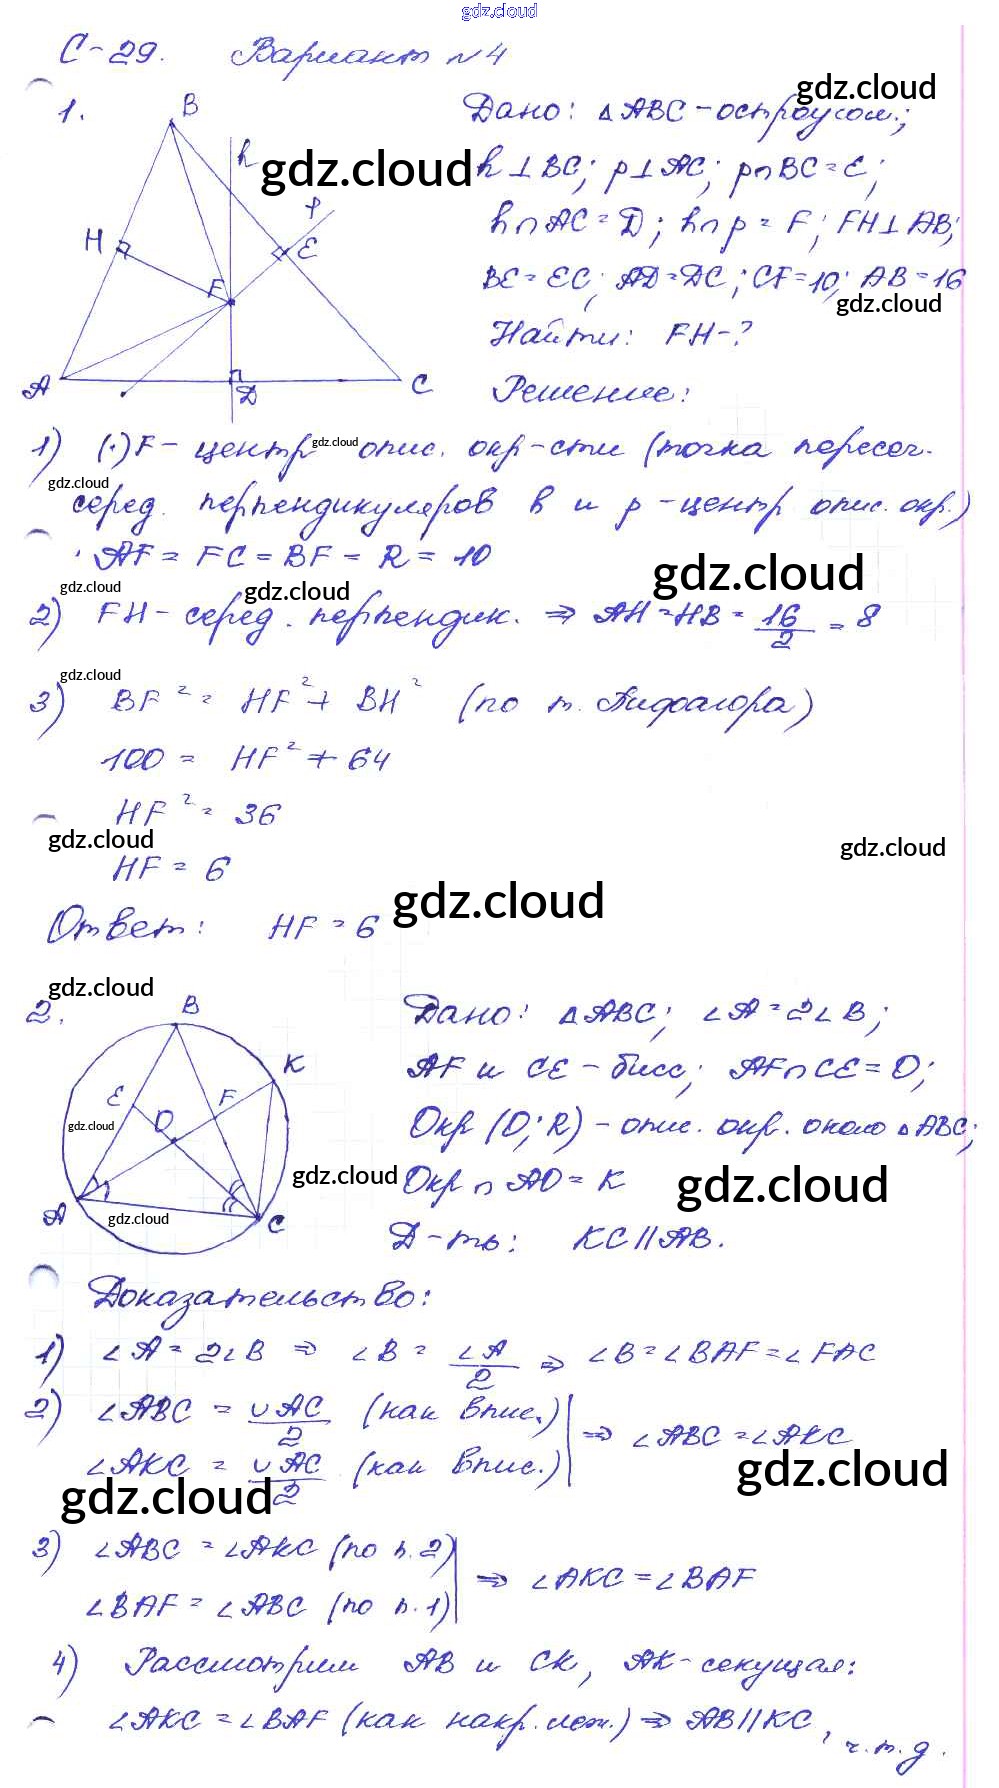 gdz.cloud
С-29. Вариант №4
gdz.cloud
1.
B
h
p
H
E
F
A
D
C
gdz.cloud
Дано: △ABC - остроугол.;
h⊥BC; p⊥AC; p∩BC=E;
h∩AC=D; h∩p=F; FH⊥AB;
BE=EC; AD=DC; CF=10; AB=16
gdz.cloud
Найти: FH-?
Решение:
1) (·)F - центр опис. окр-сти (точка пересеч.
gdz.cloud
gdz.cloud
серед. перпендикуляров h и p - центр опис. окр.)
AF = FC = BF = R = 10
gdz.cloud
gdz.cloud
gdz.cloud
2) FH - серед. перпендик. ⇒ AH=HB= 16/2 = 8
gdz.cloud
3) BF² = HF² + BH² (по т. Пифагора)
100 = HF² + 64
HF² = 36
gdz.cloud
gdz.cloud
HF = 6
gdz.cloud
Ответ: HF = 6
gdz.cloud
2.
B
K
E
F
O
A
C
gdz.cloud
gdz.cloud
Дано: △ABC; ∠A=2∠B;
AF и CE - бисс; AF∩CE=O;
Окр (O; R) - опис. окр. около △ABC;
gdz.cloud
gdz.cloud
Окр ∩ AO = K
Д-ть: KC||AB.
Доказательство:
1) ∠A = 2∠B ⇒ ∠B = ∠A/2 ⇒ ∠B = ∠BAF = ∠FAC
2) ∠ABC = ∪AC/2 (как впис.)
∠AKC = ∪AC/2 (как впис.) ⇒ ∠ABC = ∠AKC
gdz.cloud
gdz.cloud
3) ∠ABC = ∠AKC (по п.2)
∠BAF = ∠ABC (по п.1) ⇒ ∠AKC = ∠BAF
4) Рассмотрим AB и CK, AK - секущая:
∠AKC = ∠BAF (как накр. леж.) ⇒ AB||KC,
ч.т.д.